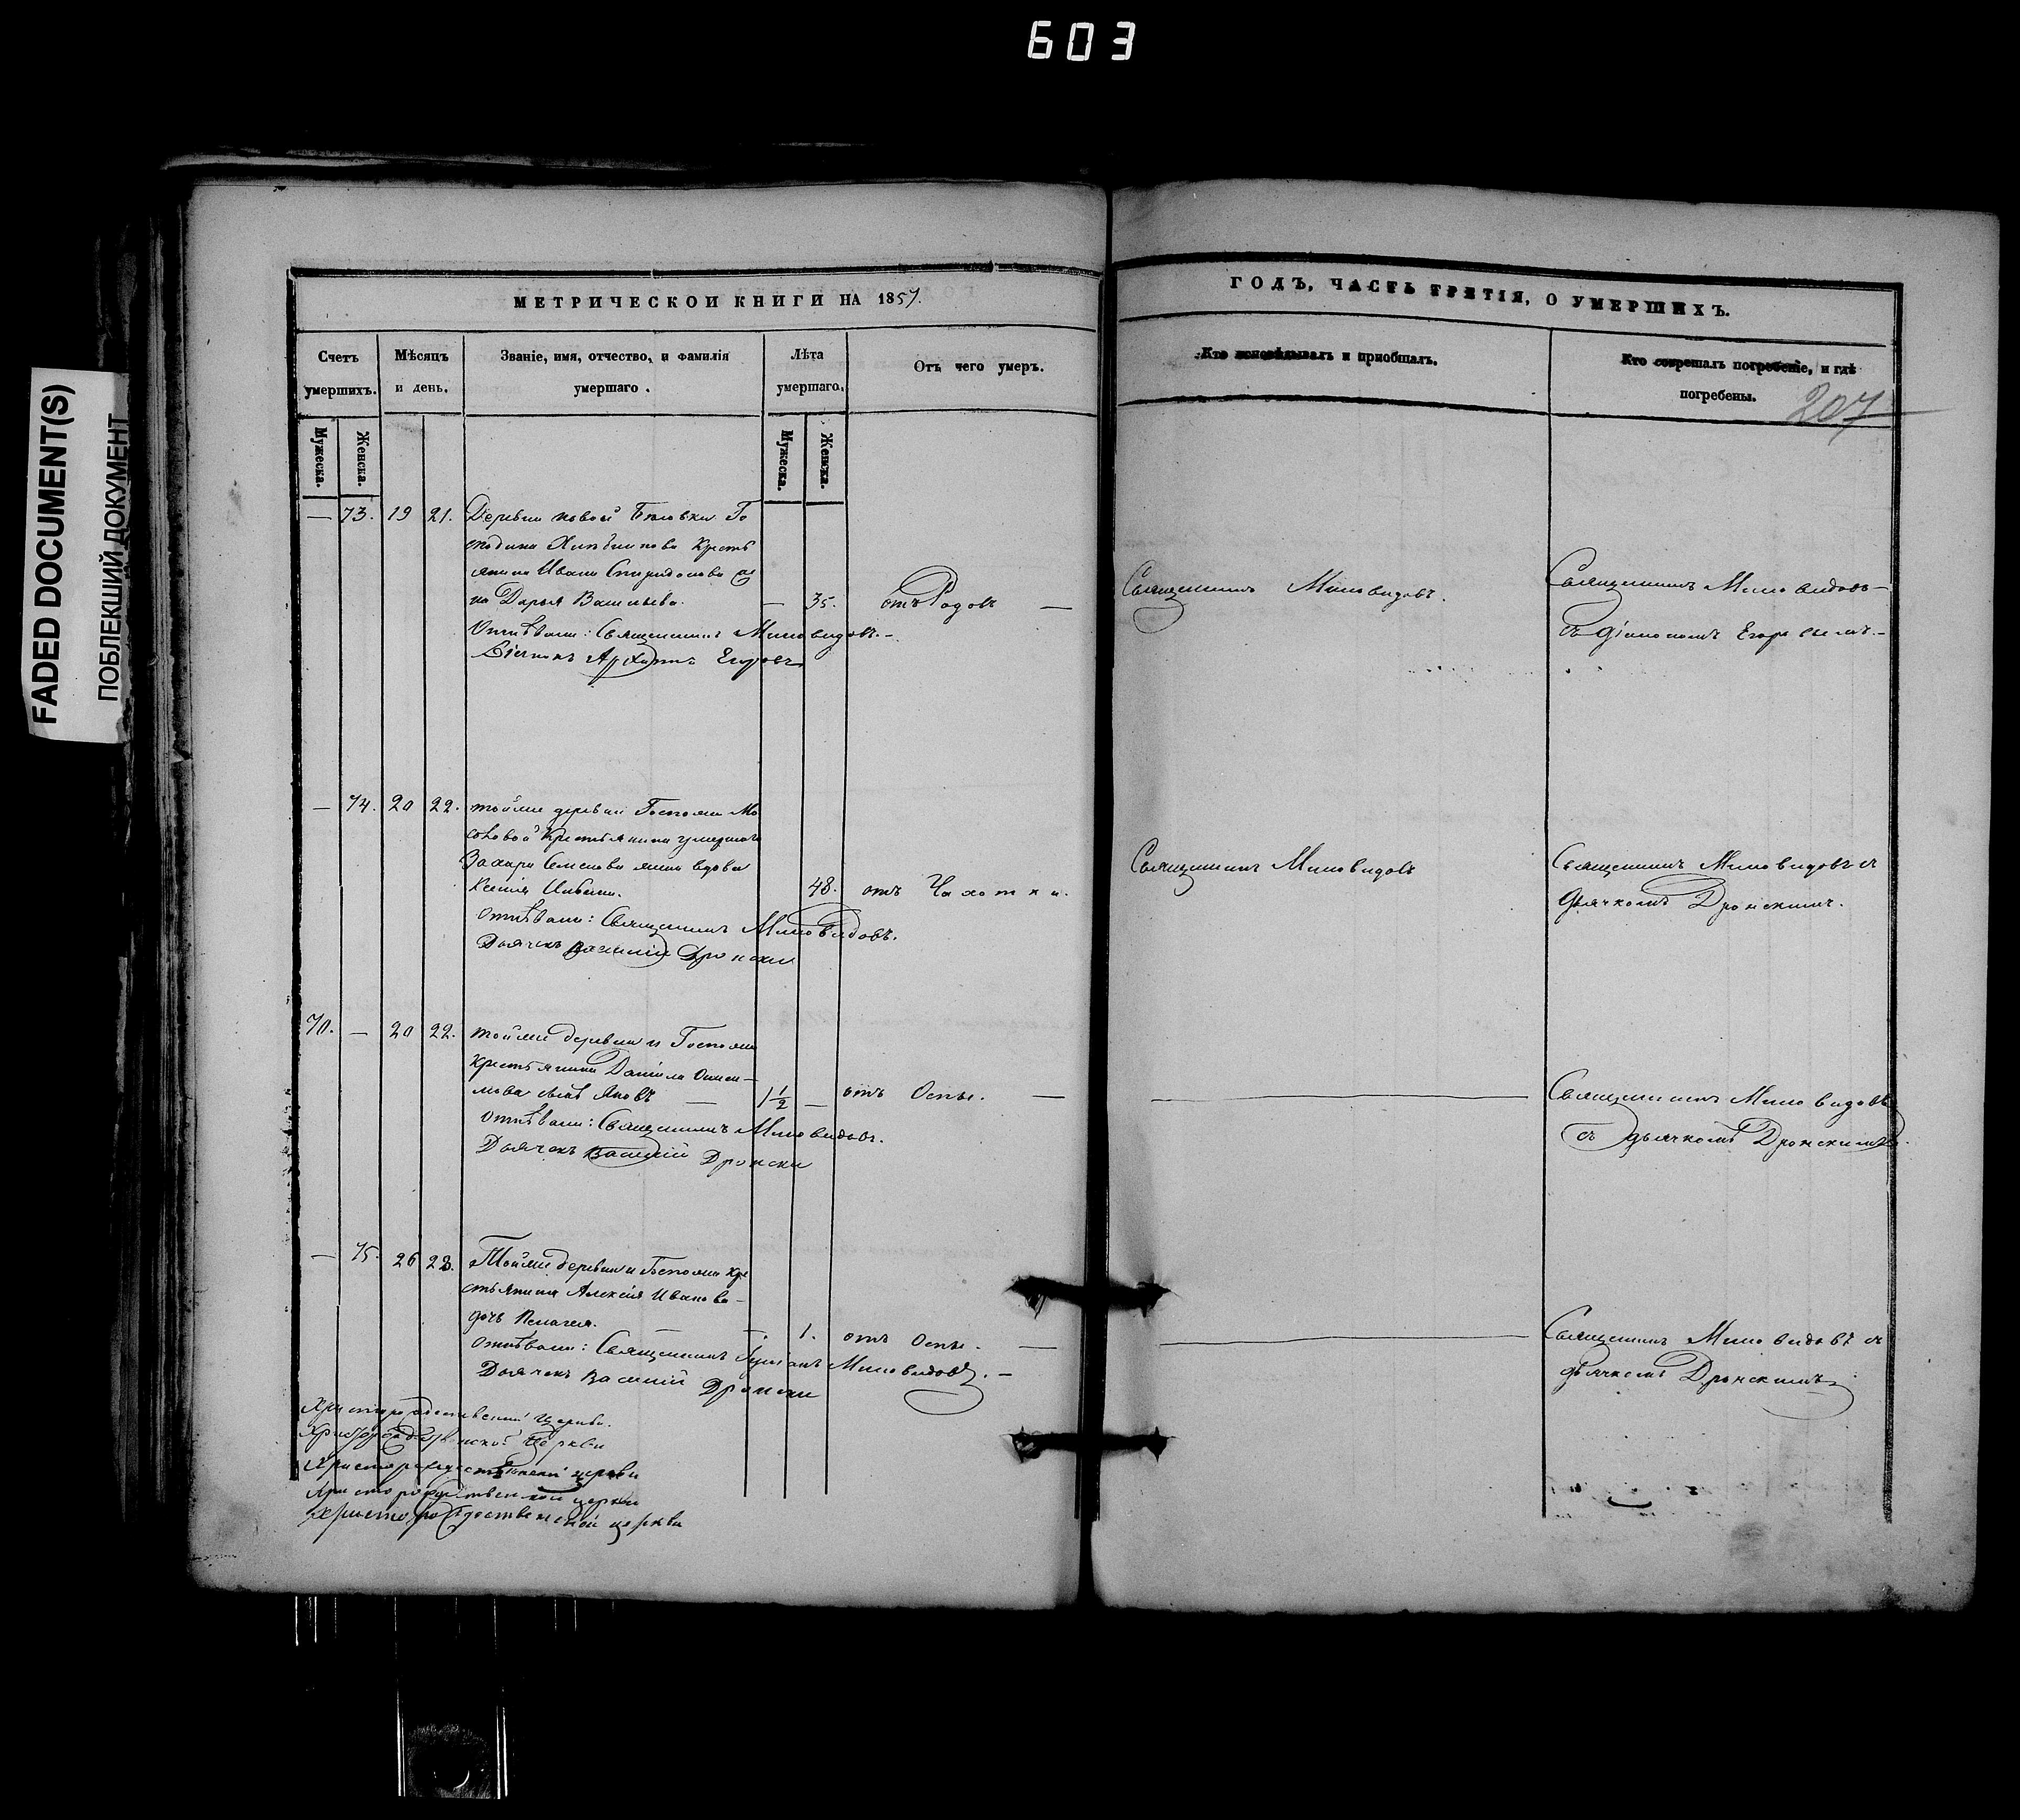 603
FADED DOCUMENT(S)
ПОБЛЕКШИЙ ДОКУМЕНТ
МЕТРИЧЕСКОЙ КНИГИ НА 1857.
Счетъ умершихъ.
Мѣсяцъ и день.
Званіе, имя, отчество, и фамилія умершаго.
Лѣта умершаго.
Отъ чего умеръ.
Мужеска.
Женска.
Мужеска.
Женска.
— 73. 19 21. Деревни новой
Господина Крестьянина
Ивана Спиридонова
на Дарья Васильева. — 35. отъ Родовъ —
Отпѣвали: Священникъ Миловидовъ.-
Архипъ Егоровъ
— 74. 20 22. тойже деревни Госпожи
Крестьянина умершаго
Захара Семенова жена вдова
Ксенія 48. отъ Чахотки.
Отпѣвали: Священникъ Миловидовъ.
Дьячекъ Василій Дронски
70. — 20 22. тойже деревни и Госпожи
Крестьянина Даніила
сынъ Яковъ — 1½ — отъ Оспы. —
Отпѣвали: Священникъ Миловидовъ.
Дьячекъ Василій Дронски
— 75. 26 28. Тойже деревни и Госпожи Кре
стьянина Алексія Иванова
дочь Пелагея. — — 1. отъ Оспы. —
Отпѣвали: Священникъ Миловидовъ. —
Дьячекъ Василій Дронски
Христорождественской Церкви.
Христорождественской Церкви
Христорождественской церкви
Христорождественской церкви
Христорождественской церкви
ГОДЪ, ЧАСТЬ ТРЕТІЯ, О УМЕРШИХЪ.
Кто исповѣдывалъ и пріобщалъ.
Кто совершалъ погребеніе, и гдѣ погребены.
207
Священникъ Миловидовъ.
Священникъ Миловидовъ —
съ діакономъ
Священникъ Миловидовъ
Священникъ Миловидовъ съ
дьячкомъ Дронскимъ.
Священникъ Миловидовъ
съ дьячкомъ Дронскимъ.
Священникъ Миловидовъ съ
дьячкомъ Дронскимъ